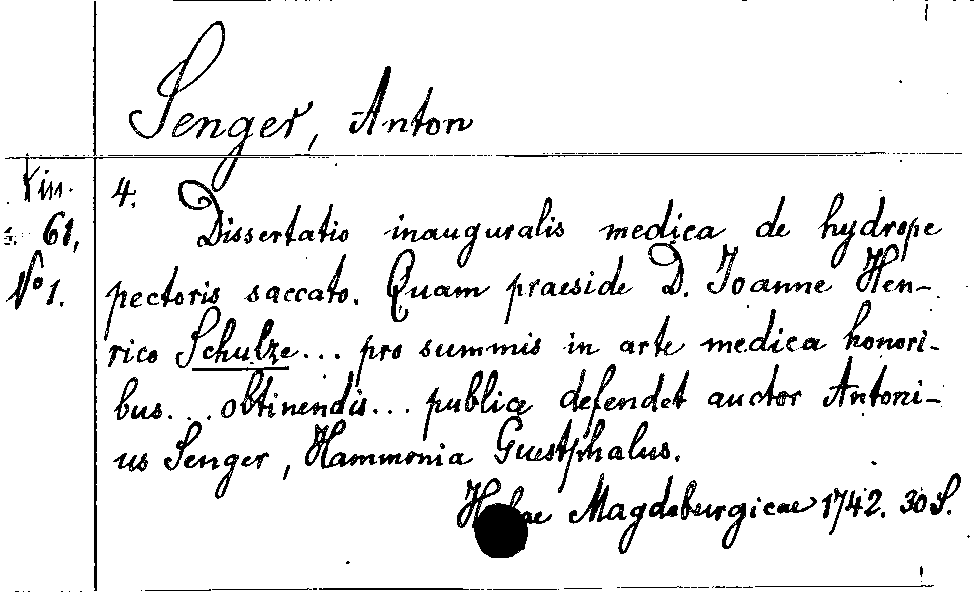 Senger, Anton
4. Dissertatio inauguralis medica de hydrope
61,
No 1.
pectoris saccato. Quam praeside D. Joanne Hen-
rico Schulze... pro summis in arte medica honori-
bus... obtinendis... publice defendet auctor Antoni-
us Senger, Hammonia Guestphalus.
Magdeburgicae 1742. 30 S.